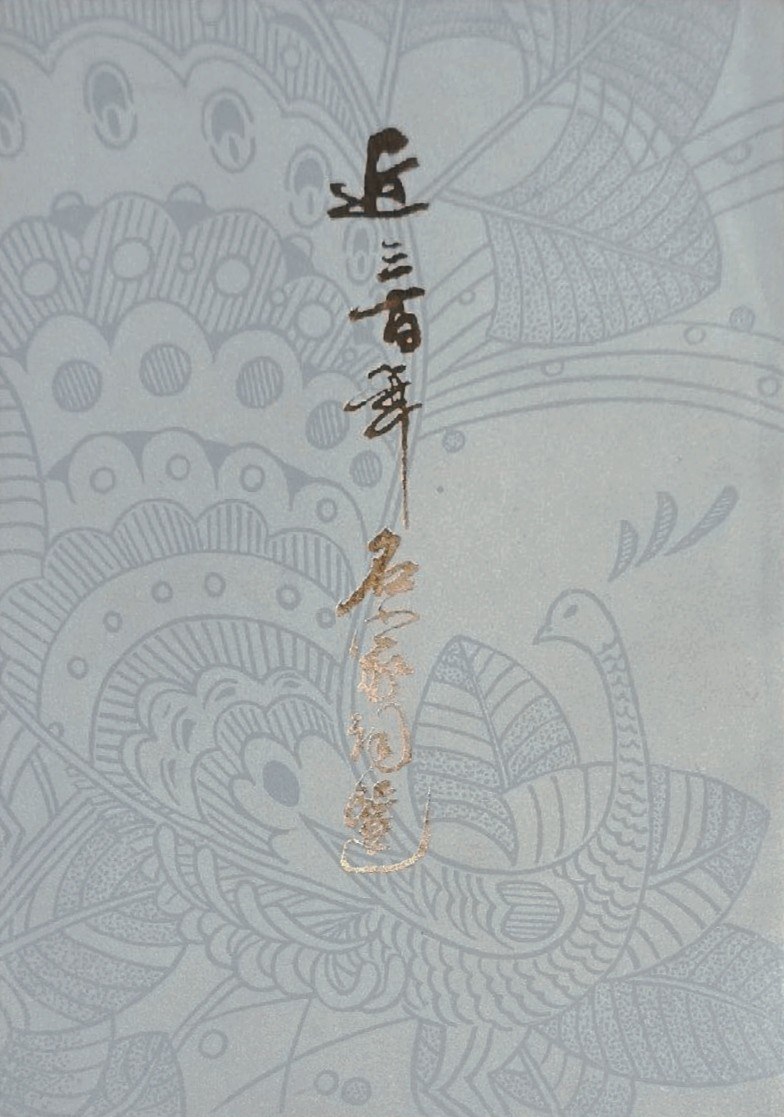 近三百年名家词选